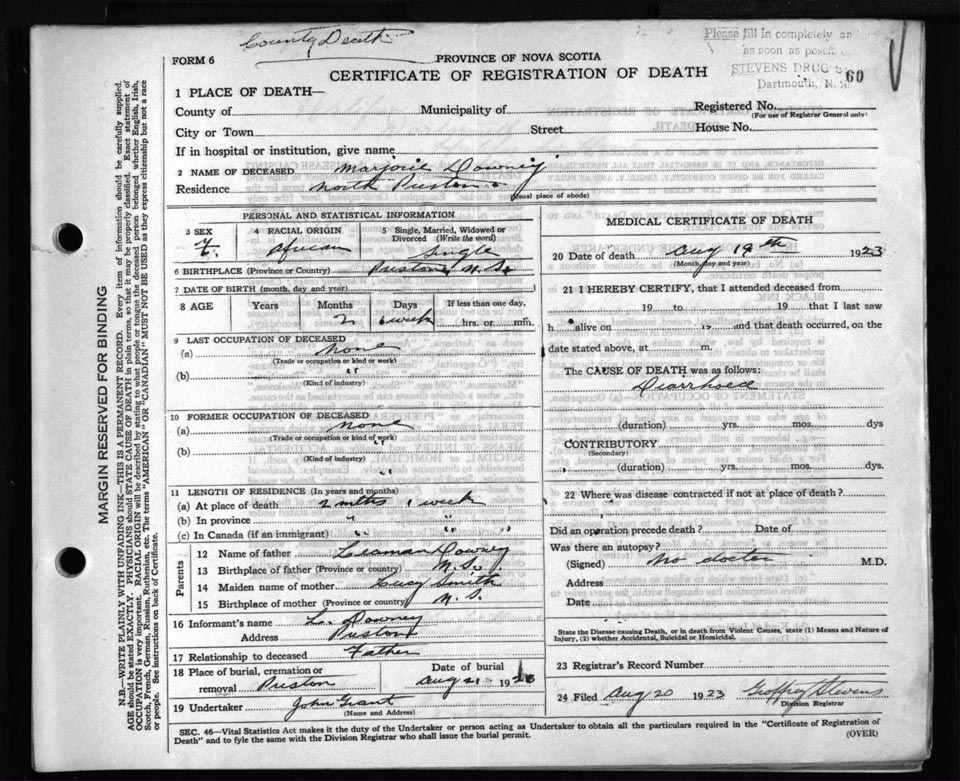 County Death
Please fill in completely an
as soon as possi
STEVENS DRUG S
Dartmouth, N. S.
60
FORM 6
PROVINCE OF NOVA SCOTIA
CERTIFICATE OF REGISTRATION OF DEATH
1 PLACE OF DEATH—
County of
Municipality of
Registered No.
(For use of Registrar General only)
City or Town
Street
House No.
If in hospital or institution, give name
2 NAME OF DECEASED Marjorie Downey
Residence North Preston
(Usual place of abode)
PERSONAL AND STATISTICAL INFORMATION
3 SEX F.
4 RACIAL ORIGIN African
5 Single, Married, Widowed or Divorced (Write the word) Single
6 BIRTHPLACE (Province or Country) Preston N.S.
7 DATE OF BIRTH (month, day and year)
8 AGE Years Months 2 Days 1 week If less than one day, hrs. or min.
9 LAST OCCUPATION OF DECEASED
(a) none
(Trade or occupation or kind or work)
(b)
(Kind of industry)
10 FORMER OCCUPATION OF DECEASED
(a) none
(Trade or occupation or kind of work)
(b)
(Kind of industry)
11 LENGTH OF RESIDENCE (In years and months)
(a) At place of death 2 mths 1 week
(b) In province " "
(c) In Canada (if an immigrant) " "
Parents
12 Name of father Leaman Downey
13 Birthplace of father (Province or country) N.S.
14 Maiden name of mother Lucy Smith
15 Birthplace of mother (Province or country) N.S.
16 Informant's name L. Downey
Address Preston
17 Relationship to deceased Father
18 Place of burial, cremation or removal Preston
Date of burial Aug 21 19
19 Undertaker John Grant
(Name and Address)
MEDICAL CERTIFICATE OF DEATH
20 Date of death Aug 19th 1923
(Month, day and year)
21 I HEREBY CERTIFY, that I attended deceased from
19 to 19 that I last saw
h alive on 19 and that death occurred, on the
date stated above, at m.
The CAUSE OF DEATH was as follows:
Diarrhoea
(duration) yrs. mos. dys
CONTRIBUTORY
(Secondary)
(duration) yrs. mos. dys.
22 Where was disease contracted if not at place of death?
Did an operation precede death? Date of
Was there an autopsy?
(Signed) No doctor M.D.
Address
Date
State the Disease causing Death, or in death from Violent Causes, state (1) Means and Nature of
Injury, (2) whether Accidental, Suicidal or Homicidal.
23 Registrar's Record Number
24 Filed Aug 20 1923 Geoffrey Stevens
Division Registrar
SEC. 46—Vital Statistics Act makes it the duty of the Undertaker or person acting as Undertaker to obtain all the particulars required in the "Certificate of Registration of
Death" and to fyle the same with the Division Registrar who shall issue the burial permit.
(OVER)
MARGIN RESERVED FOR BINDING
N.B.—WRITE PLAINLY WITH UNFADING INK—THIS IS A PERMANENT RECORD. Every item of information should be carefully supplied.
AGE should be stated EXACTLY. PHYSICIANS should STATE CAUSE OF DEATH in plain terms, so that it may be properly classified. Exact statement of
OCCUPATION is very important. RACIAL ORIGIN will be described by stating to what people or tongue the deceased person belonged, whether English, Irish,
Scotch, French, German, Russian, Ruthenian, etc. The terms "AMERICAN" OR "CANADIAN" MUST NOT BE USED as they express citizenship but not a race
or people. See instructions on back of Certificate.